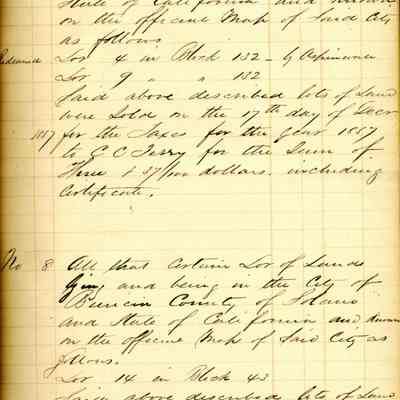 State of California and known
on the official Map of Said City
as follows
Redeemed Lot 4 in Block 132 - by Aspinwall
Lot 9 " " 132
Said above described lots of Land
were Sold on the 17th day of Decr
1887 for the Taxes for the year 1887
to C C Terry for the Sum of
Three & 37/100 dollars. including
Certificate.
No 8 All that Certain Lot of Lands
lying and being in the City of
Benicia County of Solano
and State of California and known
on the official Map of Said City as
follows.
Lot 14 in Block 43
Said above described lots of Land